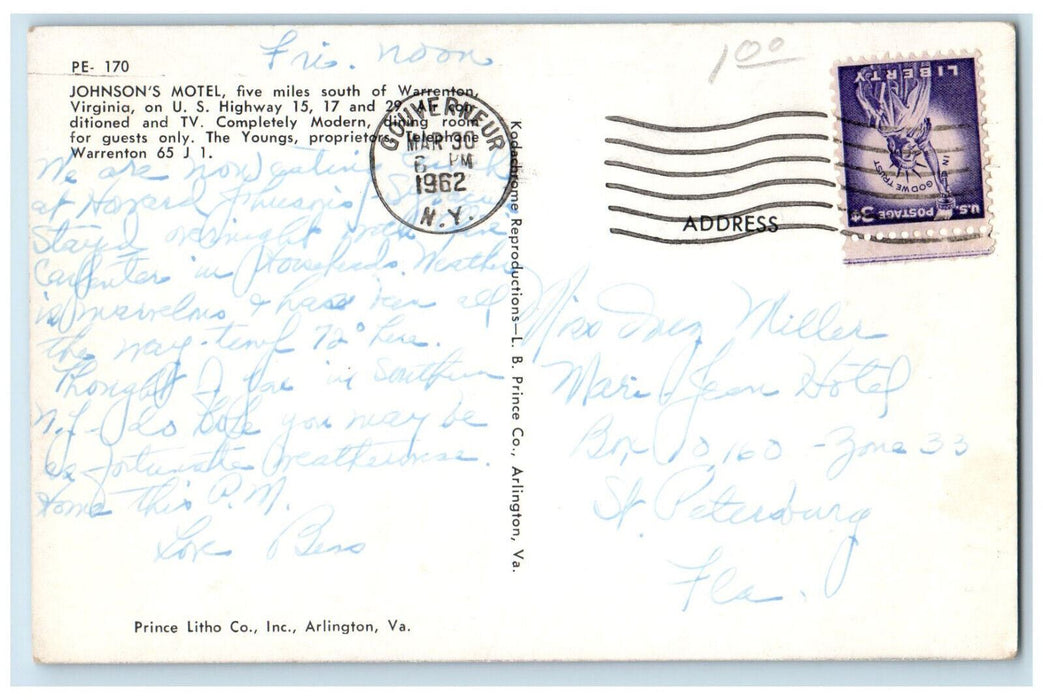 Fri. noon
1.00
PE- 170
JOHNSON'S MOTEL, five miles south of Warrenton,
Virginia, on U. S. Highway 15, 17 and 29. Air con-
ditioned and TV. Completely Modern, dining room
for guests only. The Youngs, proprietors. Telephone
Warrenton 65 J 1.
We are now eating lunch
at Howard
Stayd overnight with
Carpenter in Horseheads. Weather
is marvelous & has been all
the way - temp 72° here.
Thought of fog in Southern
N.J - do hope you may be
as fortunate weatherwise.
Home this P.M.
Love Bess
Prince Litho Co., Inc., Arlington, Va.
Kodachrome Reproductions—L. B. Prince Co., Arlington, Va.
GOUVERNEUR
MAR 30
6 PM
1962
N.Y.
LIBERTY
IN GOD WE TRUST
U.S. POSTAGE 3¢
ADDRESS
Miss Inez Miller
Mari Jean Hotel
Box 10160 - Zone 33
St. Petersburg
Fla.